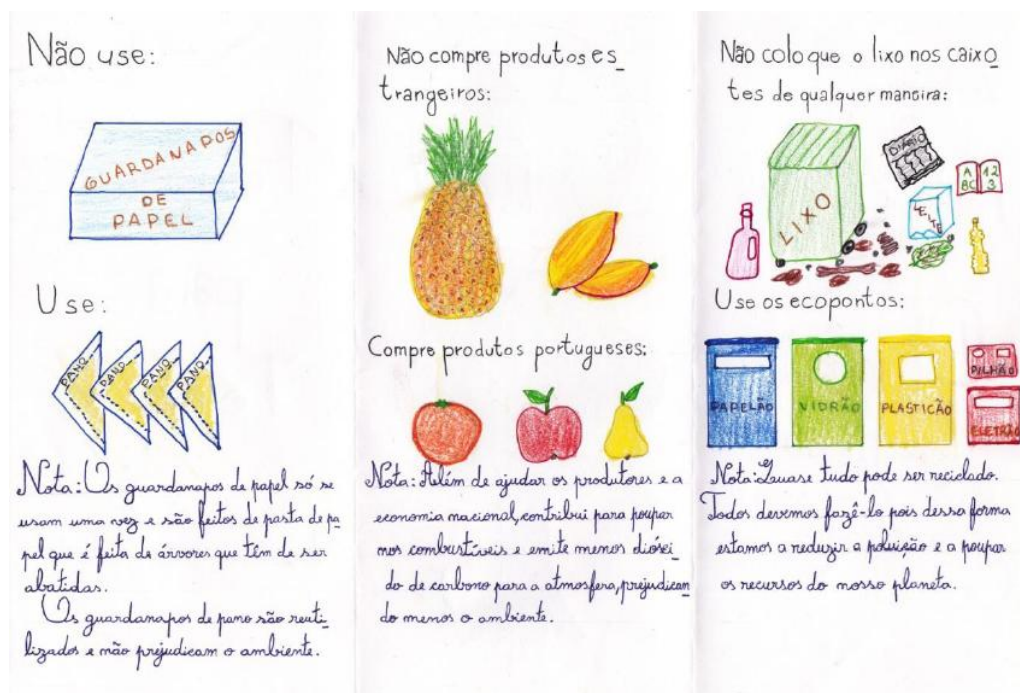 Não use:
GUARDANAPOS
DE
PAPEL
Use:
PANO
PANO
PANO
PANO
Nota: Os guardanapos de papel só se
usam uma vez e são feitos de pasta de pa
pel que é feita de árvores que têm de ser
abatidas.
Os guardanapos de pano são reuti_
lizados e não prejudicam o ambiente.
Não compre produtos es_
trangeiros:
Compre produtos portugueses:
Nota: Além de ajudar os produtores e a
economia nacional, contribui para poupar
nos combustíveis e emite menos dióxi_
do de carbono para a atmosfera, prejudican_
do menos o ambiente.
Não coloque o lixo nos caixo_
tes de qualquer maneira:
DIÁRIO
A 12
BC 3
LEITE
LIXO
Use os ecopontos:
PAPELÃO
VIDRÃO
PLASTICÃO
PILHÃO
ELETRÃO
Nota: Quase tudo pode ser reciclado.
Todos devemos fazê-lo pois dessa forma
estamos a reduzir a poluição e a poupar
os recursos do nosso planeta.